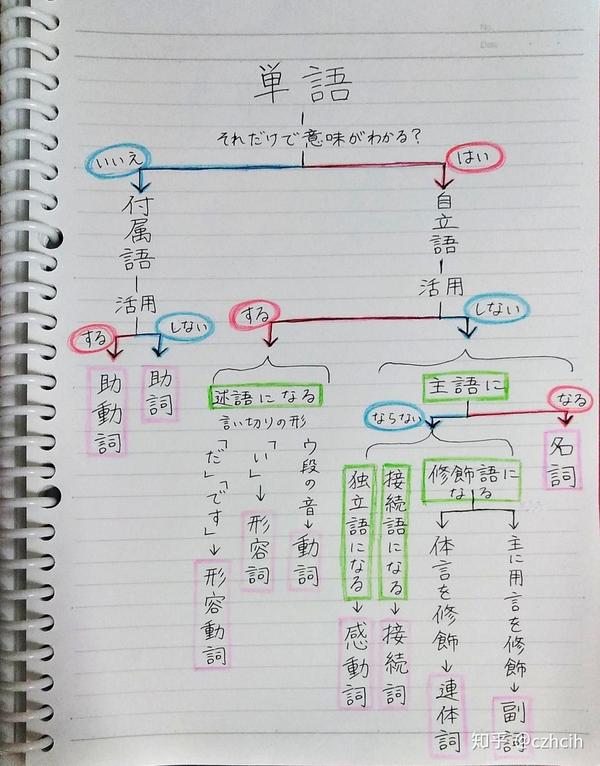 No.
Date
単語
それだけで意味がわかる?
いいえ
はい
付属語
自立語
活用
活用
する
しない
する
しない
助動詞
助詞
述語になる
言い切りの形
「だ」「です」
形容動詞
「い」
形容詞
ウ段の音
動詞
主語に
ならない
なる
名詞
独立語になる
感動詞
接続語になる
接続詞
修飾語に
なる
体言を修飾
連体詞
主に用言を修飾
副詞
知乎 @czhcih